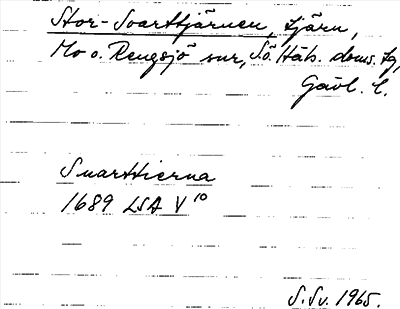 Stor-Svarttjärnen, tjärn,
Mo o. Rengsjö snr, Sö. Häls. doms. tg,
Gävl. l.
Svarttierna
1689 LSA V 10
S. Sv. 1965.